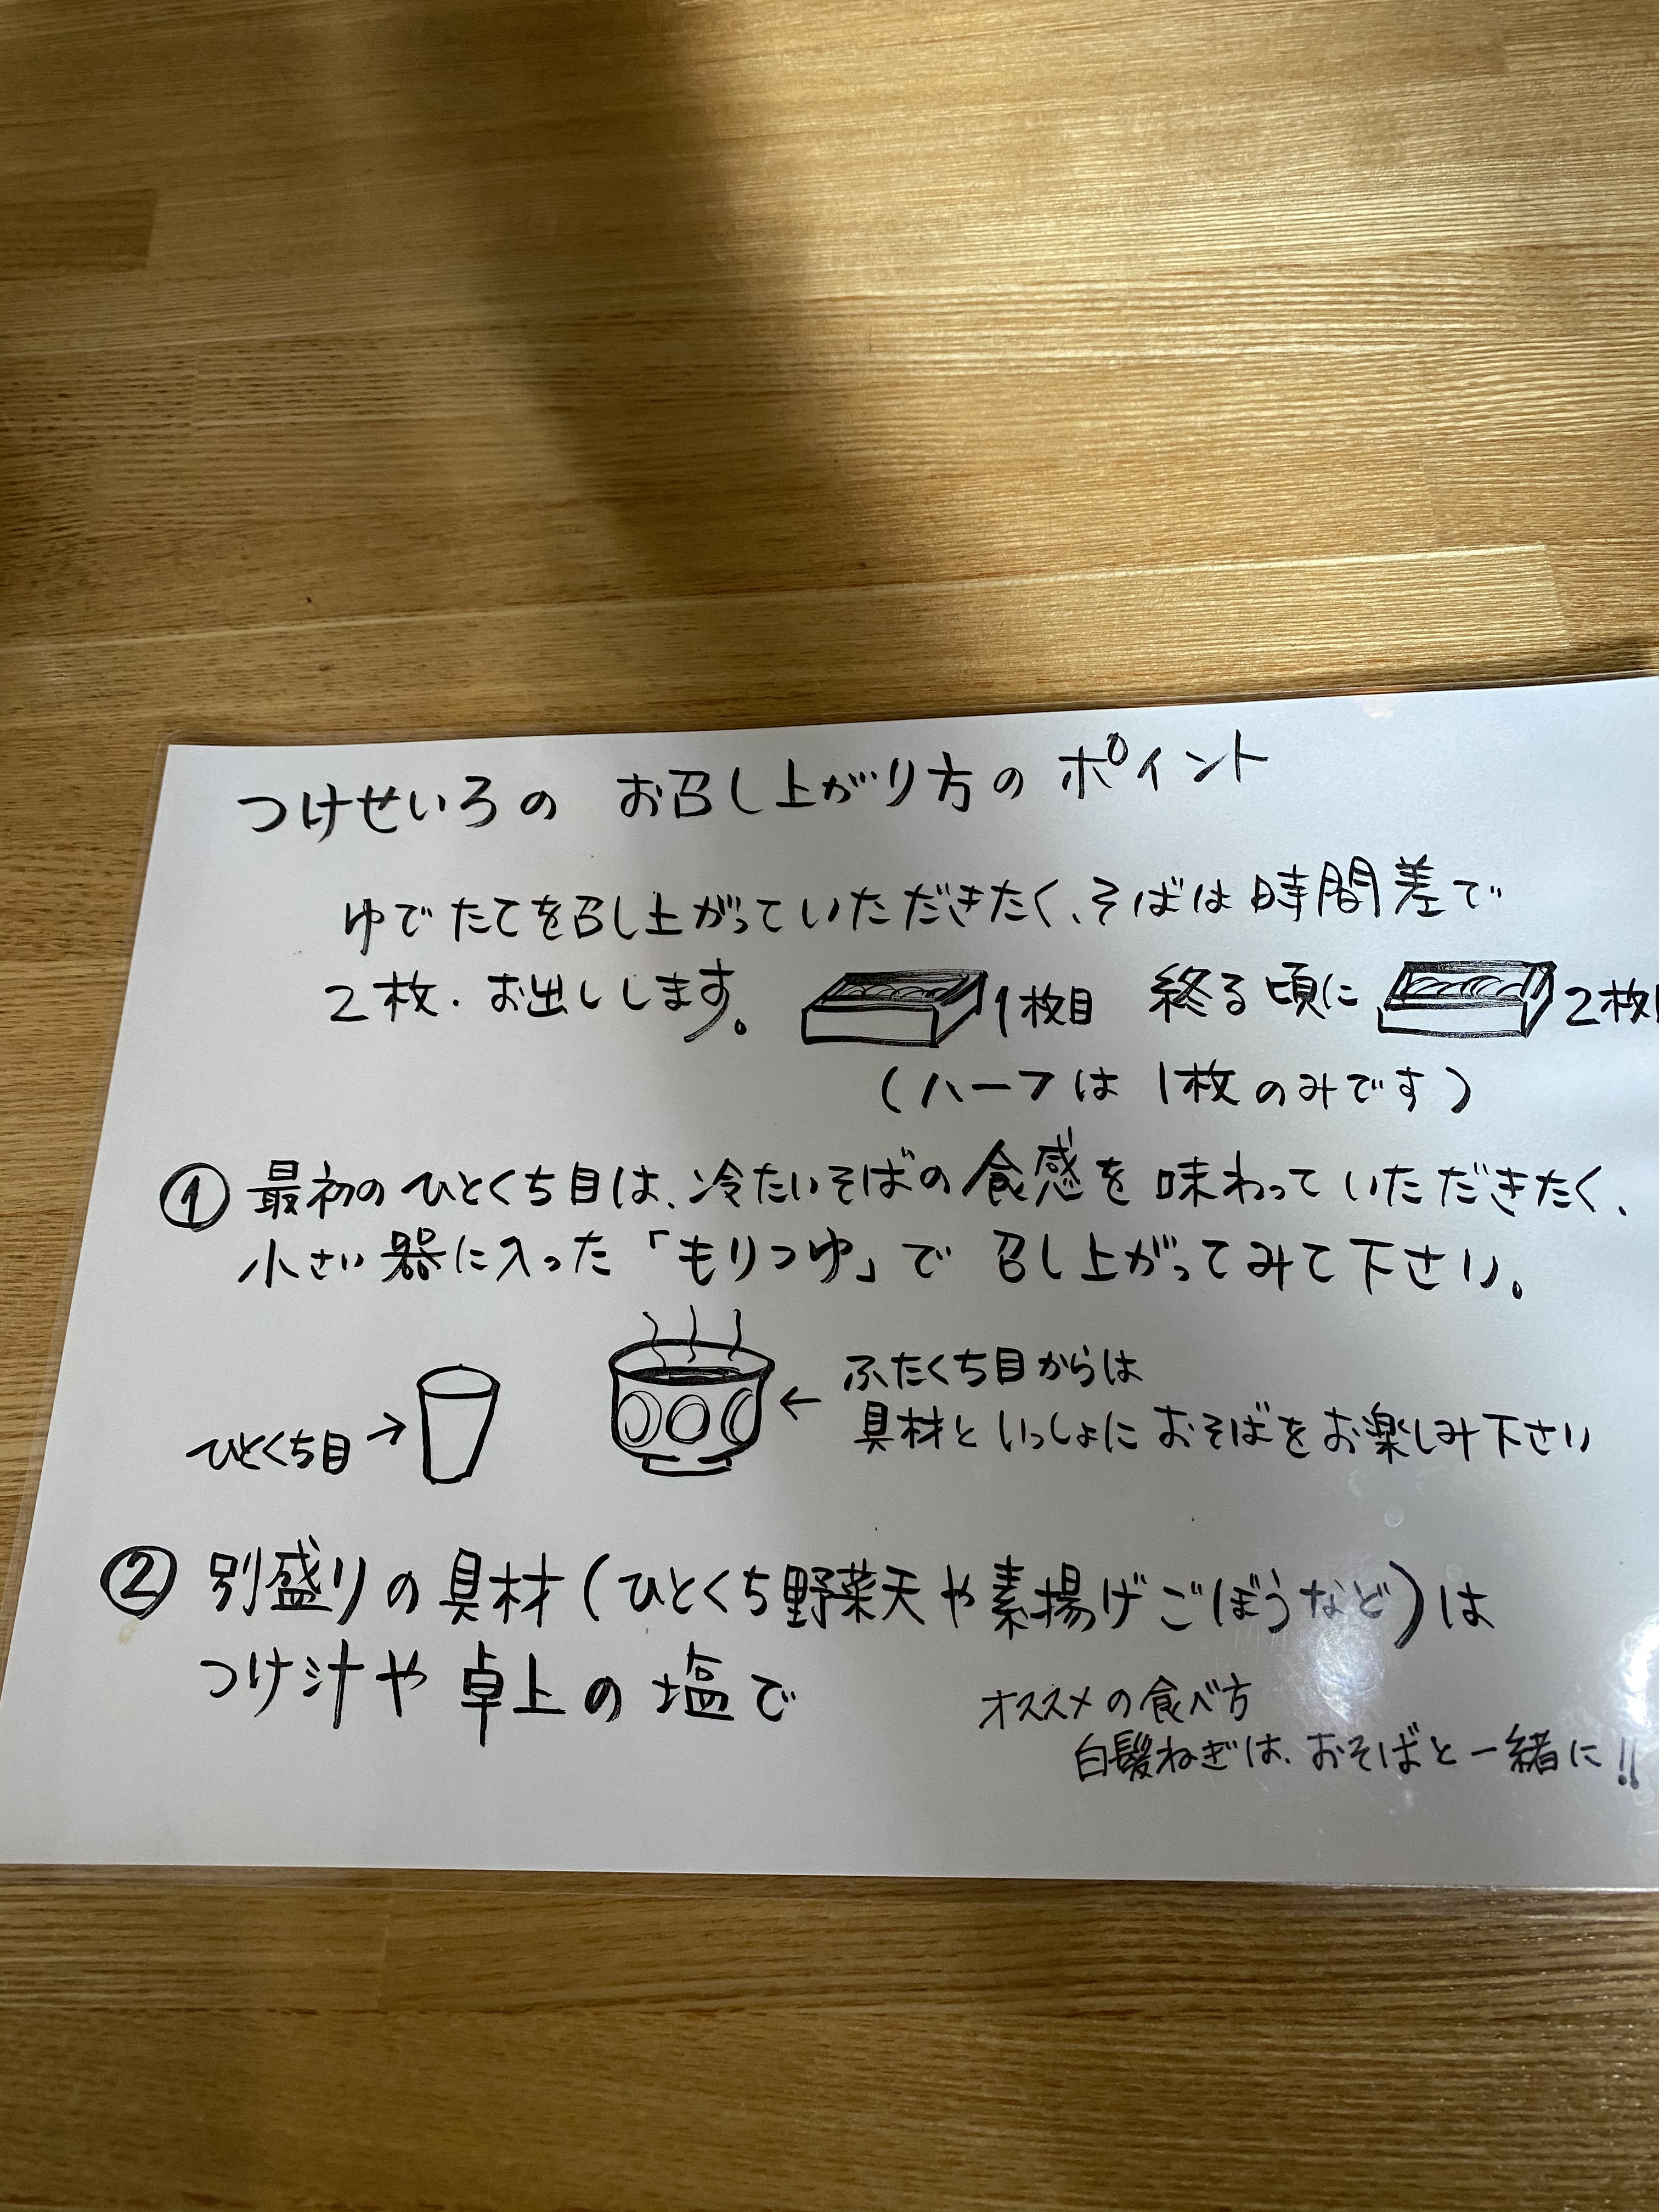 つけせいろの お召し上がり方の ポイント
ゆでたてを召し上がっていただきたく、そばは時間差で
2枚、お出しします。 1枚目 終る頃に 2枚
(ハーフは 1枚のみです)
① 最初のひとくち目は、冷たいそばの食感を味わっていただきたく、
小さい器に入った「もりつゆ」で 召し上がってみて下さい。
ふたくち目からは
ひとくち目→ ← 具材といっしょにおそばをお楽しみ下さい
② 別盛りの具材(ひとくち野菜天や素揚げごぼうなど)は
つけ汁や卓上の塩で
オススメの食べ方
白髪ねぎは、おそばと一緒に!!